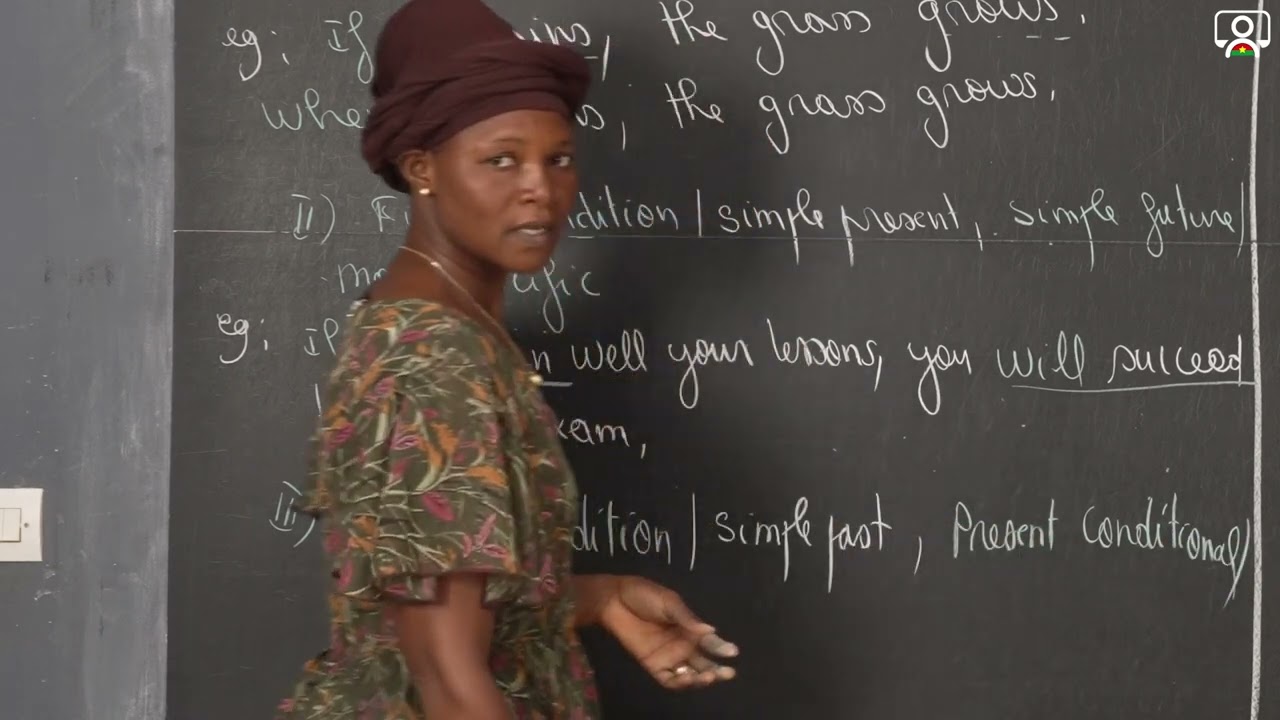 eg: If ins, the grass grows.
whe s, the grass grows.
II) Fi ndition / simple present, simple future/
- mo cific
eg: If n well your lessons, you will succeed
xam,
III) dition / simple past, Present Conditional/